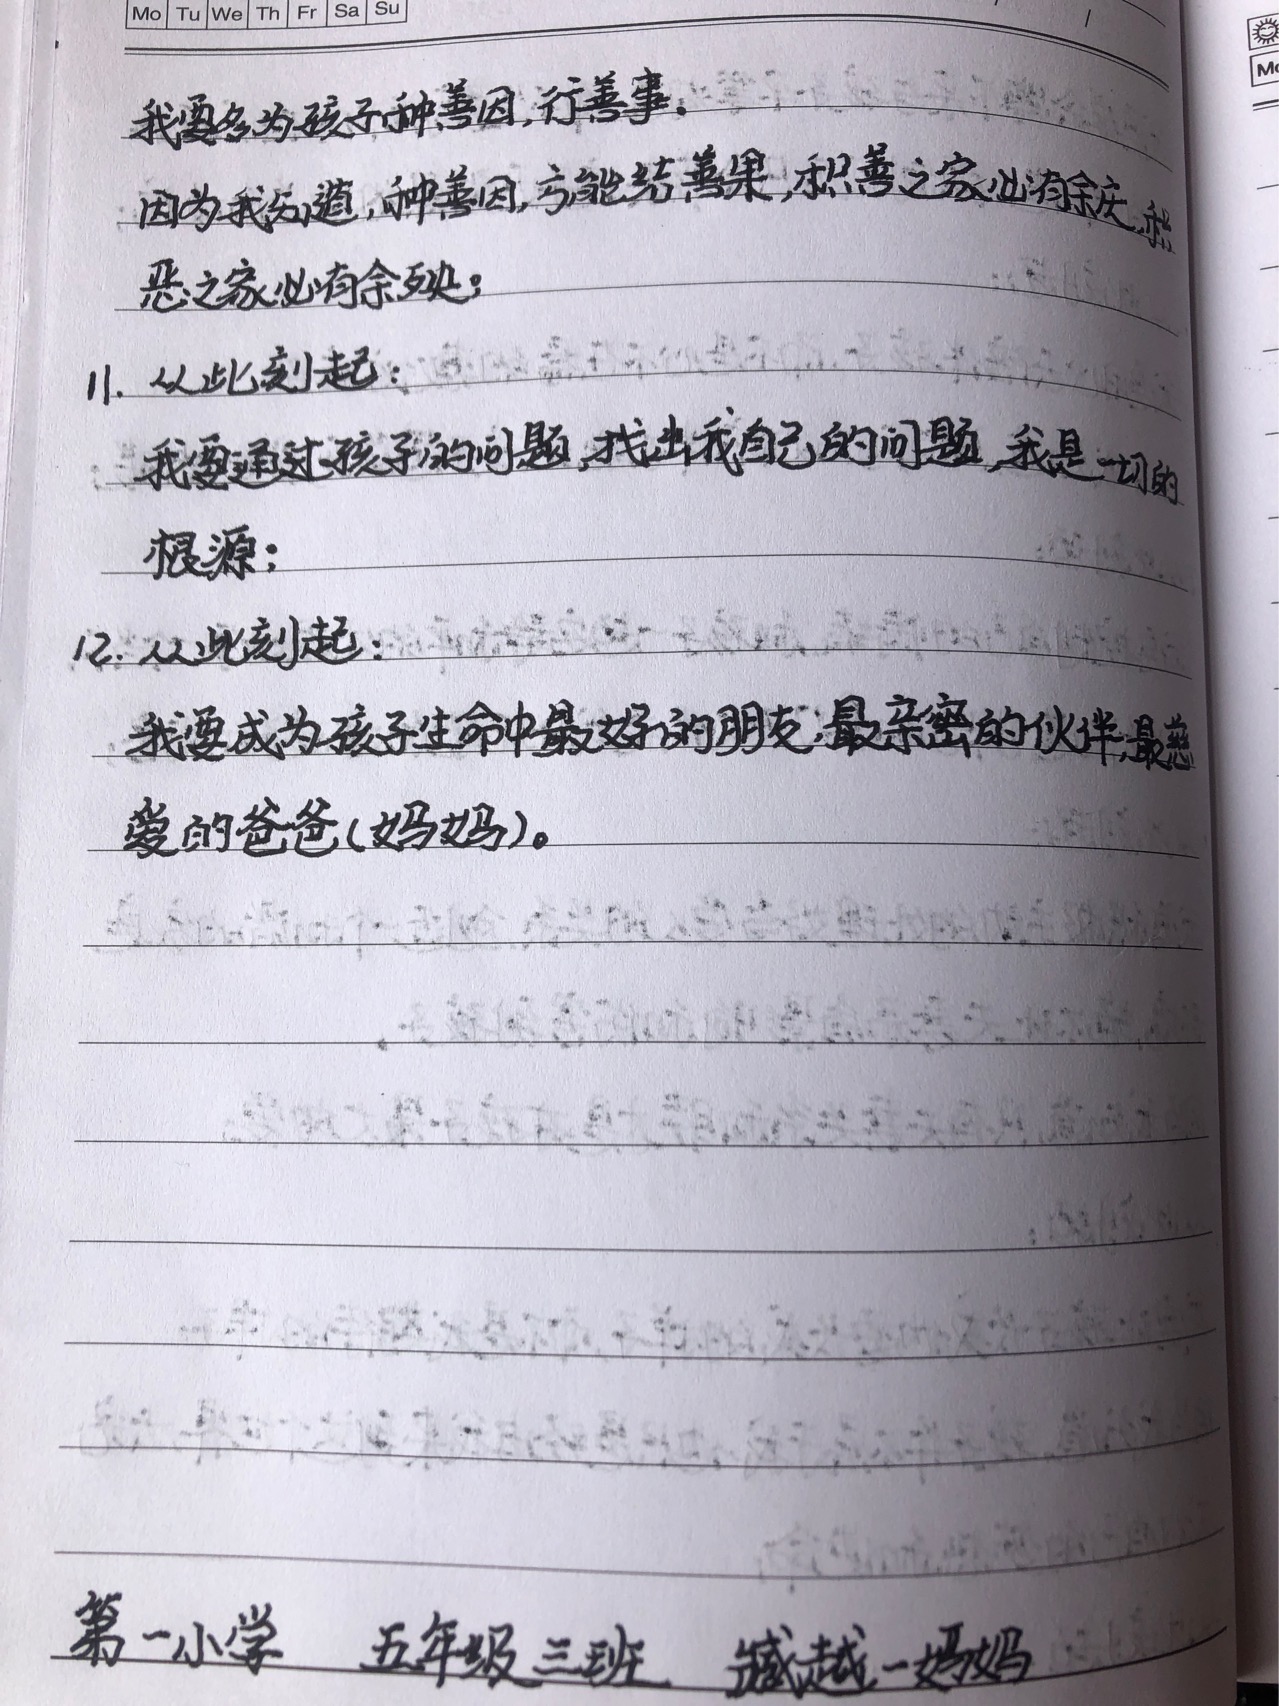 Mo Tu We Th Fr Sa Su
我要多为孩子种善因,行善事。
因为我知道,种善因,方能结善果,积善之家必有余庆,积
恶之家必有余殃;
11. 从此刻起:
我要通过孩子的问题,找出我自己的问题,我是一切的
根源;
12. 从此刻起:
我要成为孩子生命中最好的朋友,最亲密的伙伴,最慈
爱的爸爸(妈妈)。
第一小学 五年级三班 臧越一妈妈